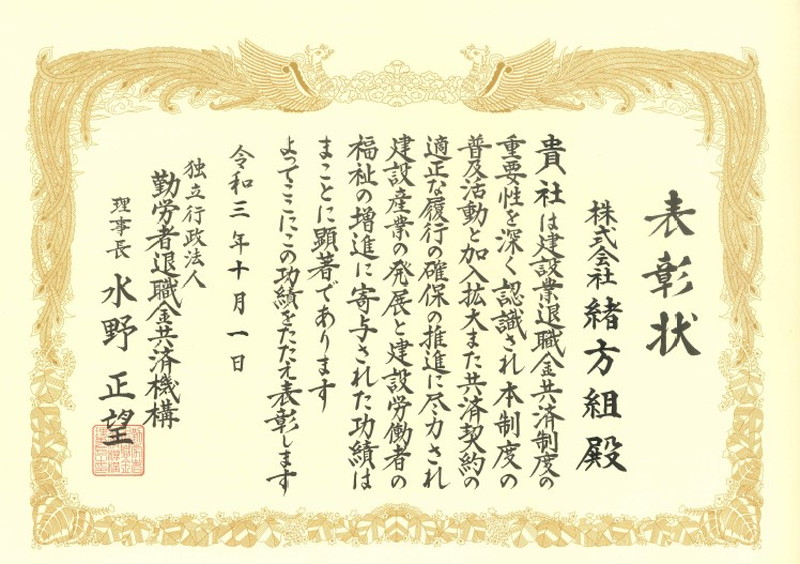 表彰状
株式会社 緒方組 殿
貴社は建設業退職金共済制度の
重要性を深く認識され本制度の
普及活動と加入拡大また共済契約の
適正な履行の確保の推進に尽力され
建設産業の発展と建設労働者の
福祉の増進に寄与された功績は
まことに顕著であります
よってここにこの功績をたたえ表彰します
令和三年十月一日
独立行政法人
勤労者退職金共済機構
理事長 水野正望